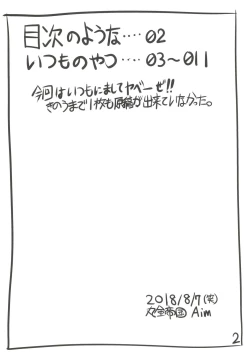 目次のような‥‥02
いつものやつ‥‥03～011
今回はいつもにましてヤベーぜ!!
きのうまで1枚も原稿が出来ていなかった。
2018/8/7(火)
帝国 Aim
2